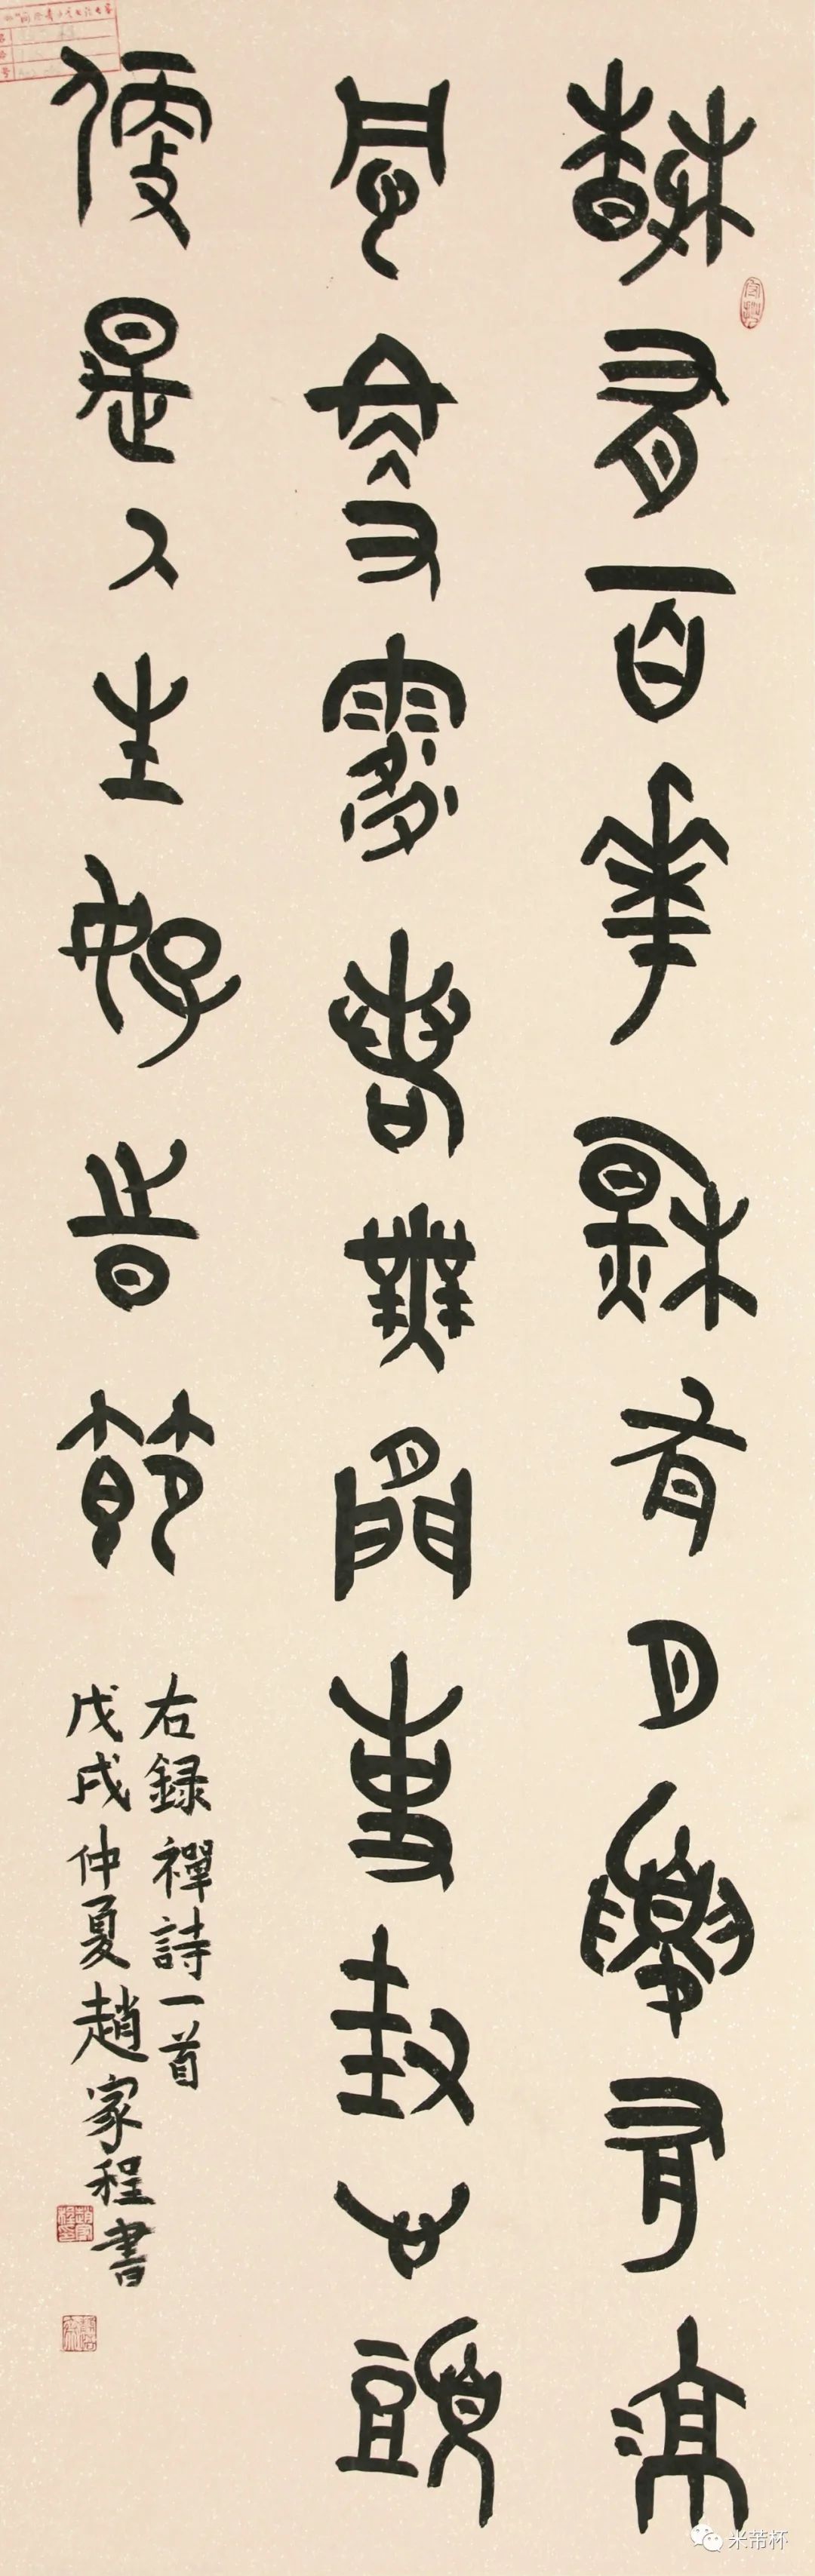 春有百花秋有月夏有涼
風冬有雪若無閒事挂心頭
便是人生好時節
右録禪詩一首
戊戌仲夏趙家程書
米芾杯